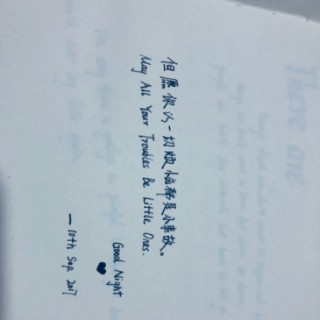 但愿你的一切烦恼都是小事故。
May All Your Troubles Be Little Ones.
Good Night
— 10th Sep. 2017